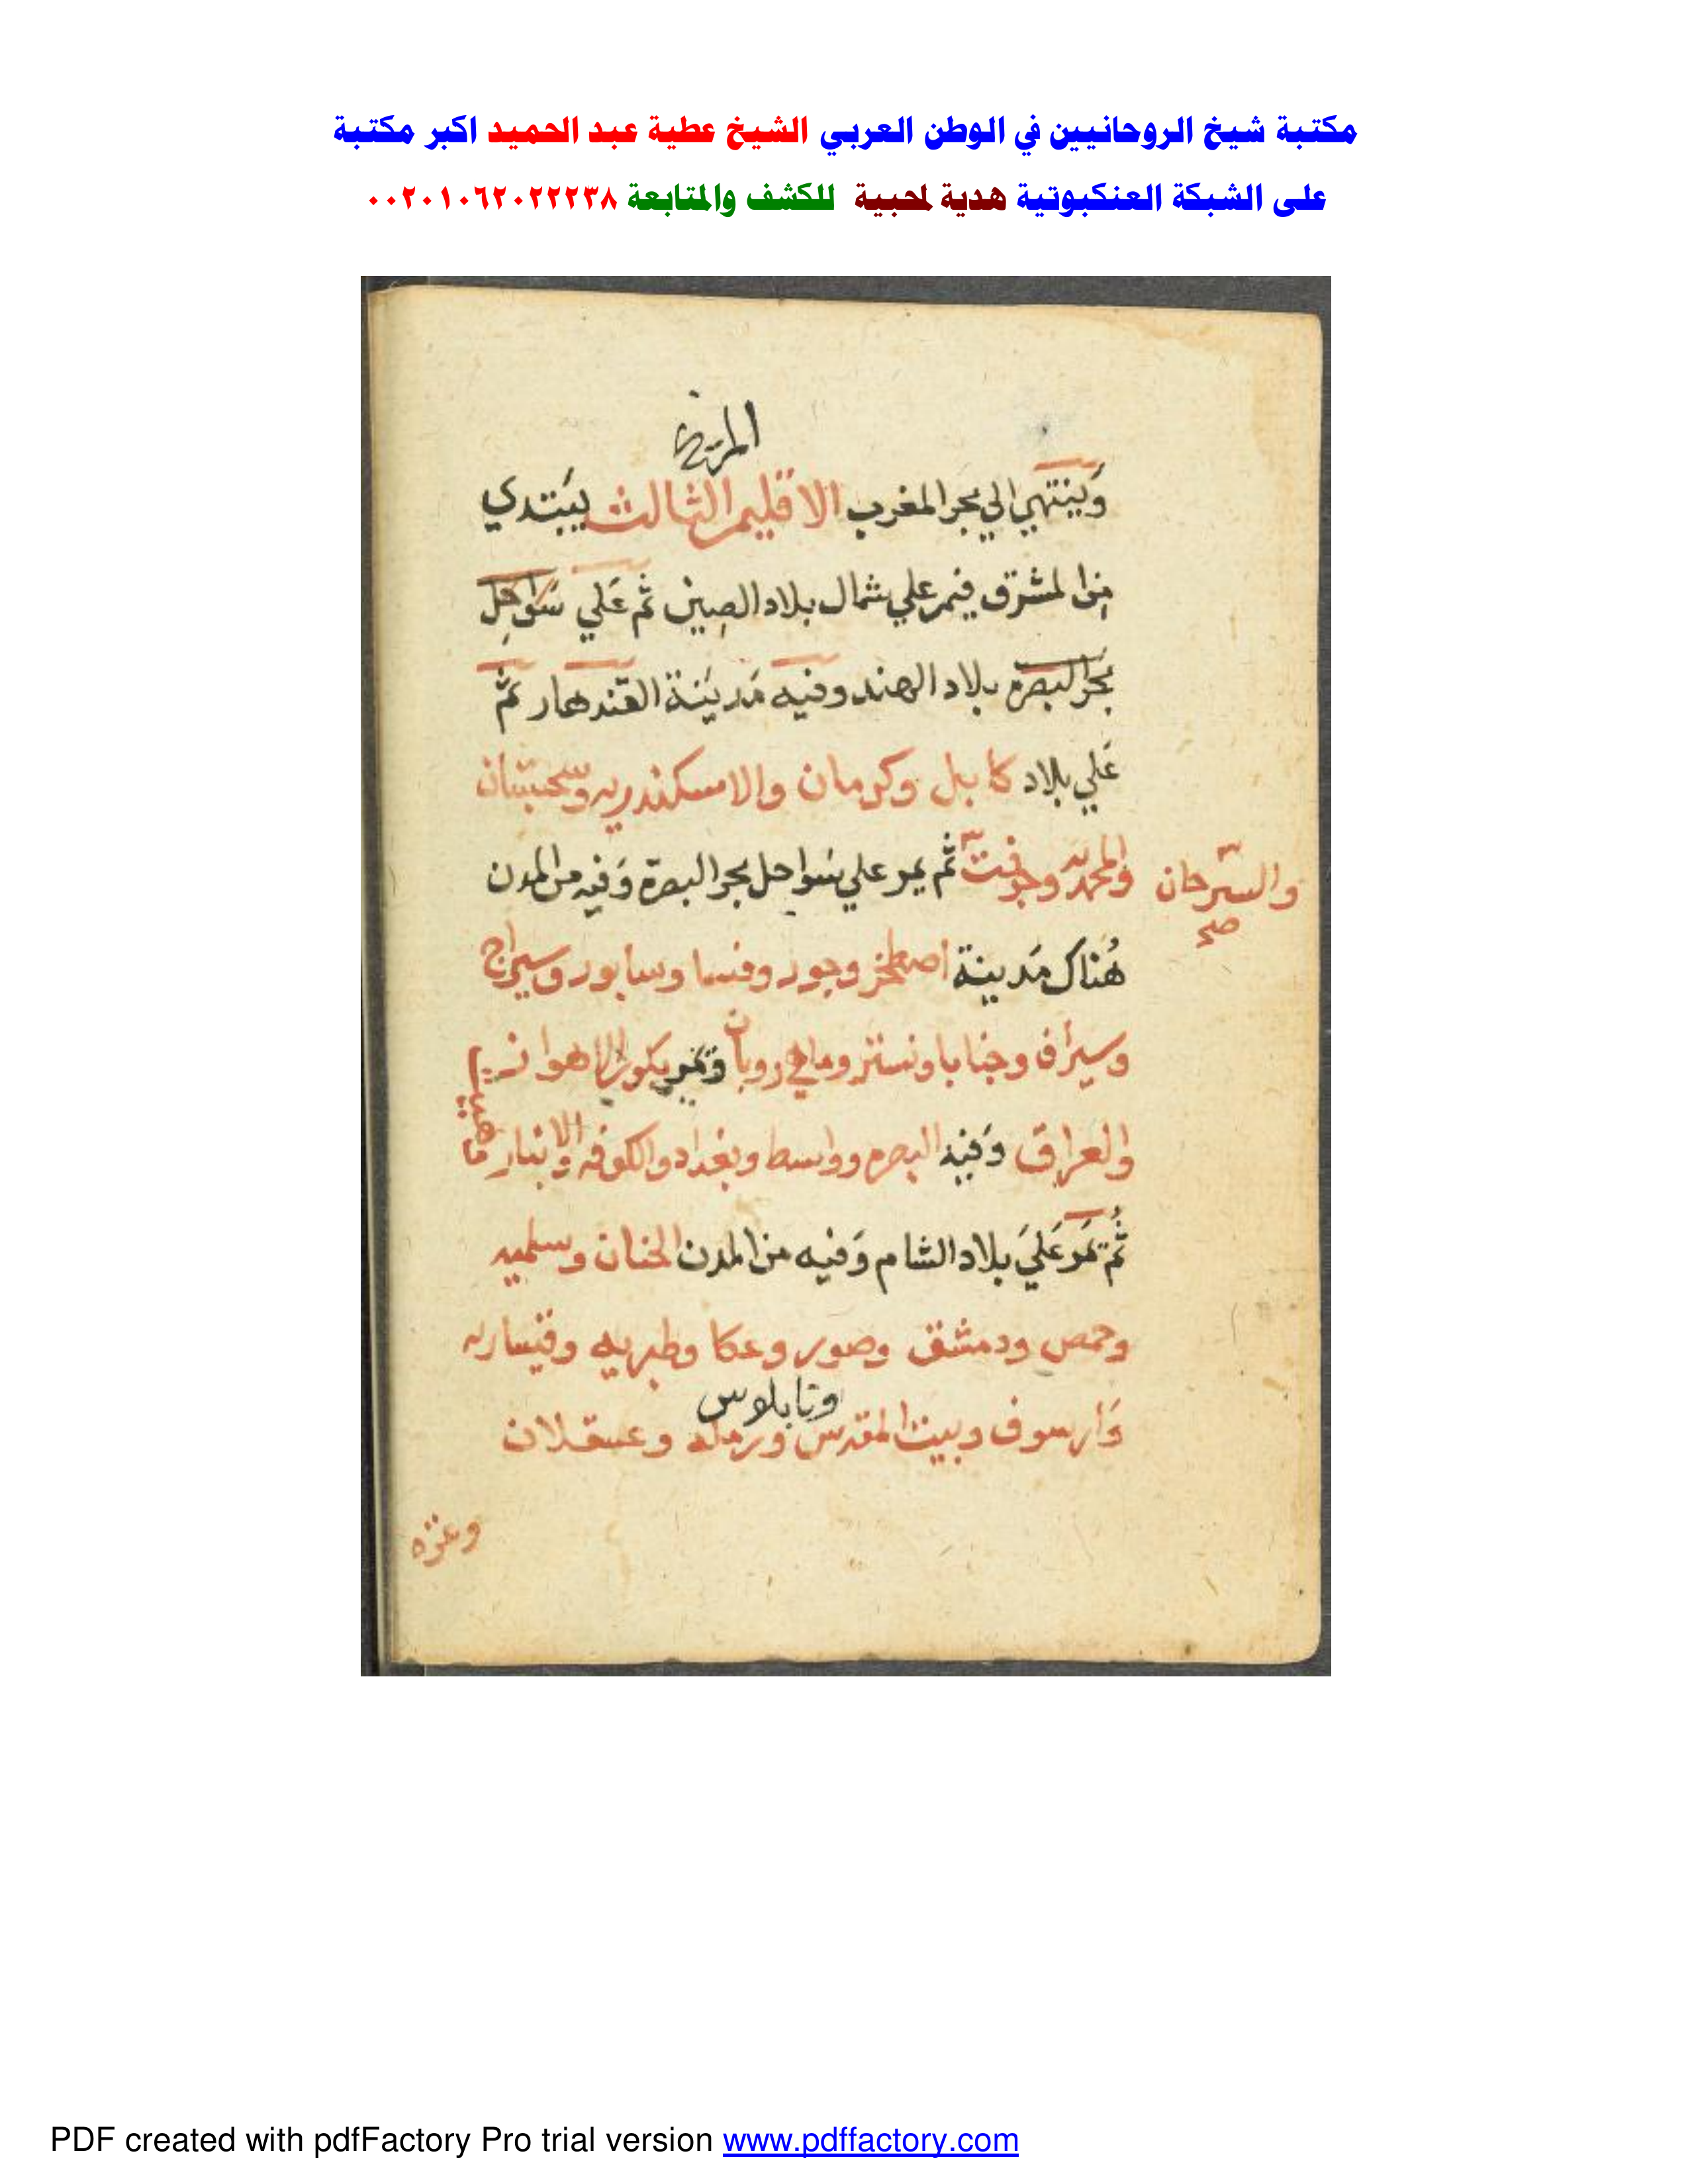 مكتبة شيخ الروحانيين في الوطن العربي الشيخ عطية عبد الحميد اكبر مكتبة
على الشبكة العنكبوتية هدية لمحبية للكشف والمتابعة ٠٠٢٠١٠٦٢٠٢٢٢٣٨
المريخ
وَينتهي الي بحر المغرب الاقليم الثالث يبتدي
من المشرق فيمر علي شمال بلاد الصين ثم عَلي سَواحِل
بحر البصره بلاد الهند وفيه مَدينة القندهار ثم
عَلي بلاد كابل وكرمان والاسكندريه وسجستان
ثم يمر علي سواحل بحر البصرة وَفيه من المدن
والسّرحان
صح
هُناك مَدينة اصطخر وجور وفسا وسابور
وسيراف وجنابا وتمر بكور الاهواز
والعراق وَفيه البصره وواسط وبغداد والكوفه والانبار
ثُم تمر عَليَ بلاد الشام وَفيه من المدن وسلميه
وحمص ودمشق وصور وعكا وطبريه وقيساريه
ونابلوس
وَارسوف وبيت المقدس ورمله وعسقلان
وغزه
PDF created with pdfFactory Pro trial version www.pdffactory.com